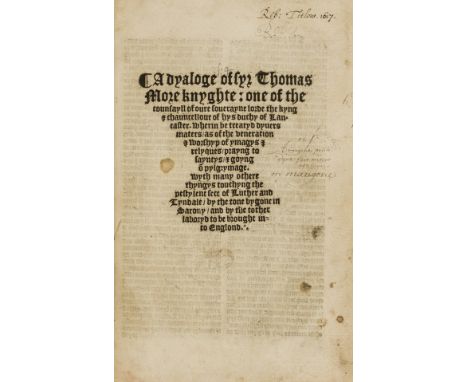 Rob: Titlow. 1617
¶ A dyaloge of syr Thomas
More knyghte: one of the
counsayll of oure souerayne lorde the kyng
& chauncellour of hys duchy of Lan-
caster. Wherin be treatyd dyuers
maters / as of the veneration
& worshyp of ymagys &
relyques / prayng to
sayntys / & goyng
ō pylgrymage.
Wyth many othere
thyngys touchyng the
pestylent sect of Luther and
Tyndale / by the tone bygone in
Saxony / and by the tother
laboryd to be brought in-
to Englond.